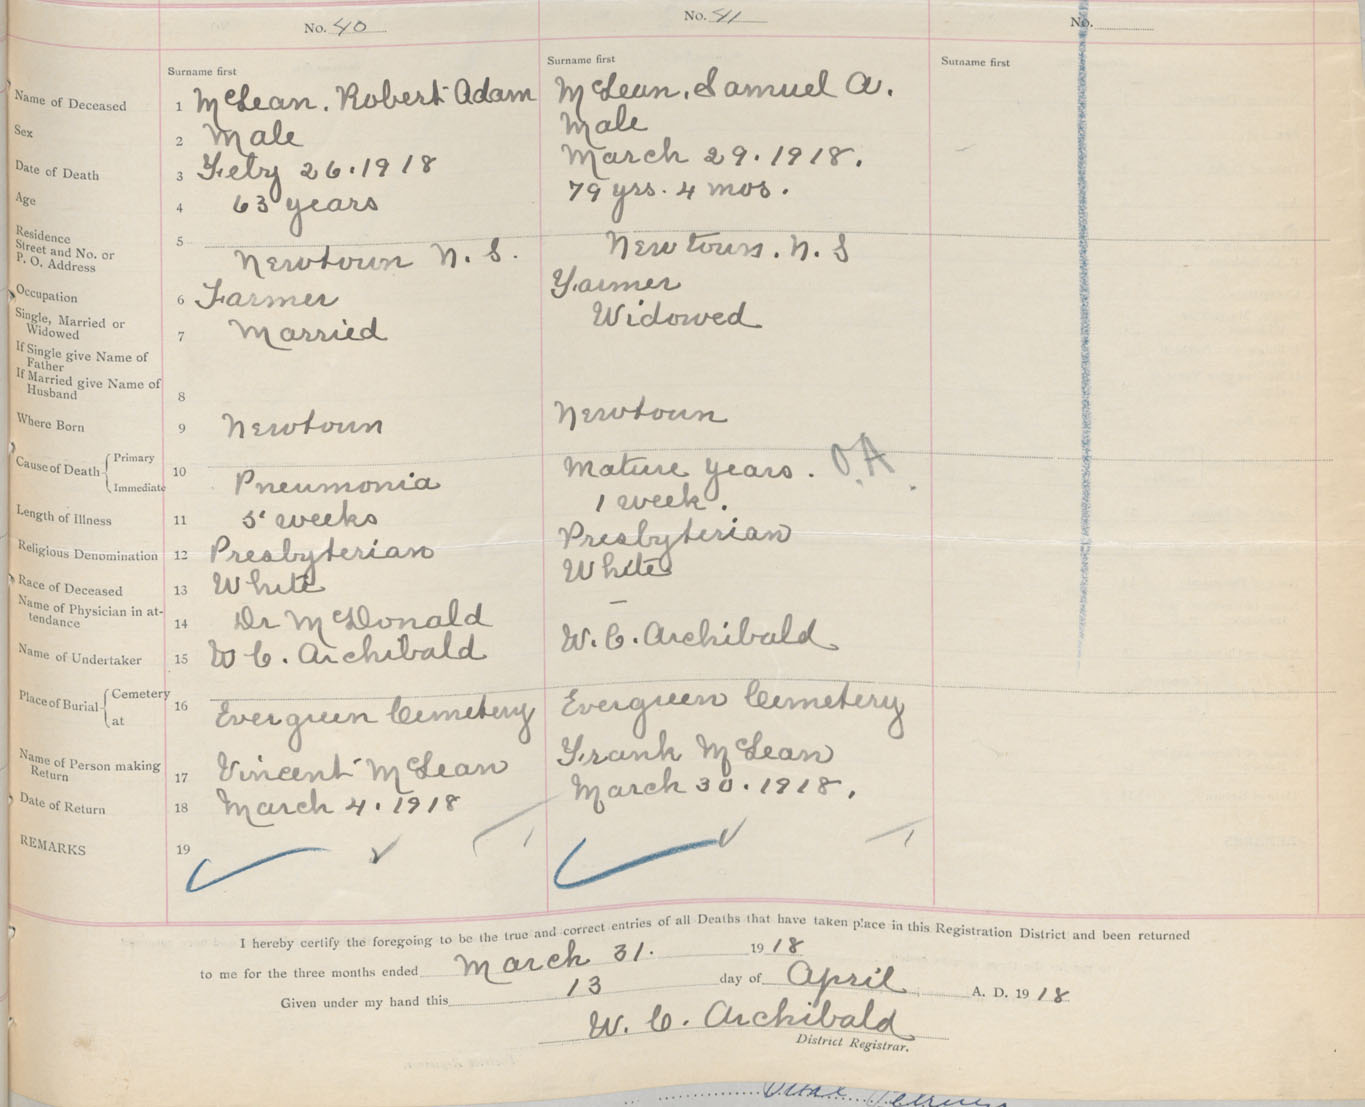 No. 40 No. 41 No.
Surname first Surname first Surname first
Name of Deceased 1 McLean, Robert Adam McLean, Samuel A.
Sex 2 Male Male
Date of Death 3 Feby 26. 1918 March 29. 1918.
Age 4 63 years 79 yrs. 4 mos.
Residence 5
Street and No. or
P. O. Address Newtown N. S. Newtown. N. S
Occupation 6 Farmer Farmer
Single, Married or
Widowed 7 Married Widowed
If Single give Name of
Father
If Married give Name of
Husband 8
Where Born 9 Newtown Newtown
Cause of Death { Primary 10 Mature years. O.A.
Immediate Pneumonia
Length of Illness 11 5 weeks 1 week.
Religious Denomination 12 Presbyterian Presbyterian
Race of Deceased 13 White White
Name of Physician in at-
tendance 14 Dr McDonald –
Name of Undertaker 15 W C. Archibald W. C. Archibald
Place of Burial { Cemetery 16
at Evergreen Cemetery Evergreen Cemetery
Name of Person making
Return 17 Vincent McLean Frank McLean
Date of Return 18 March 4. 1918 March 30. 1918.
REMARKS 19 ✓ ✓ 1 ✓ ✓ 1
I hereby certify the foregoing to be the true and correct entries of all Deaths that have taken place in this Registration District and been returned
to me for the three months ended March 31. 1918
Given under my hand this 13 day of April A. D. 1918
W. C. Archibald
District Registrar.